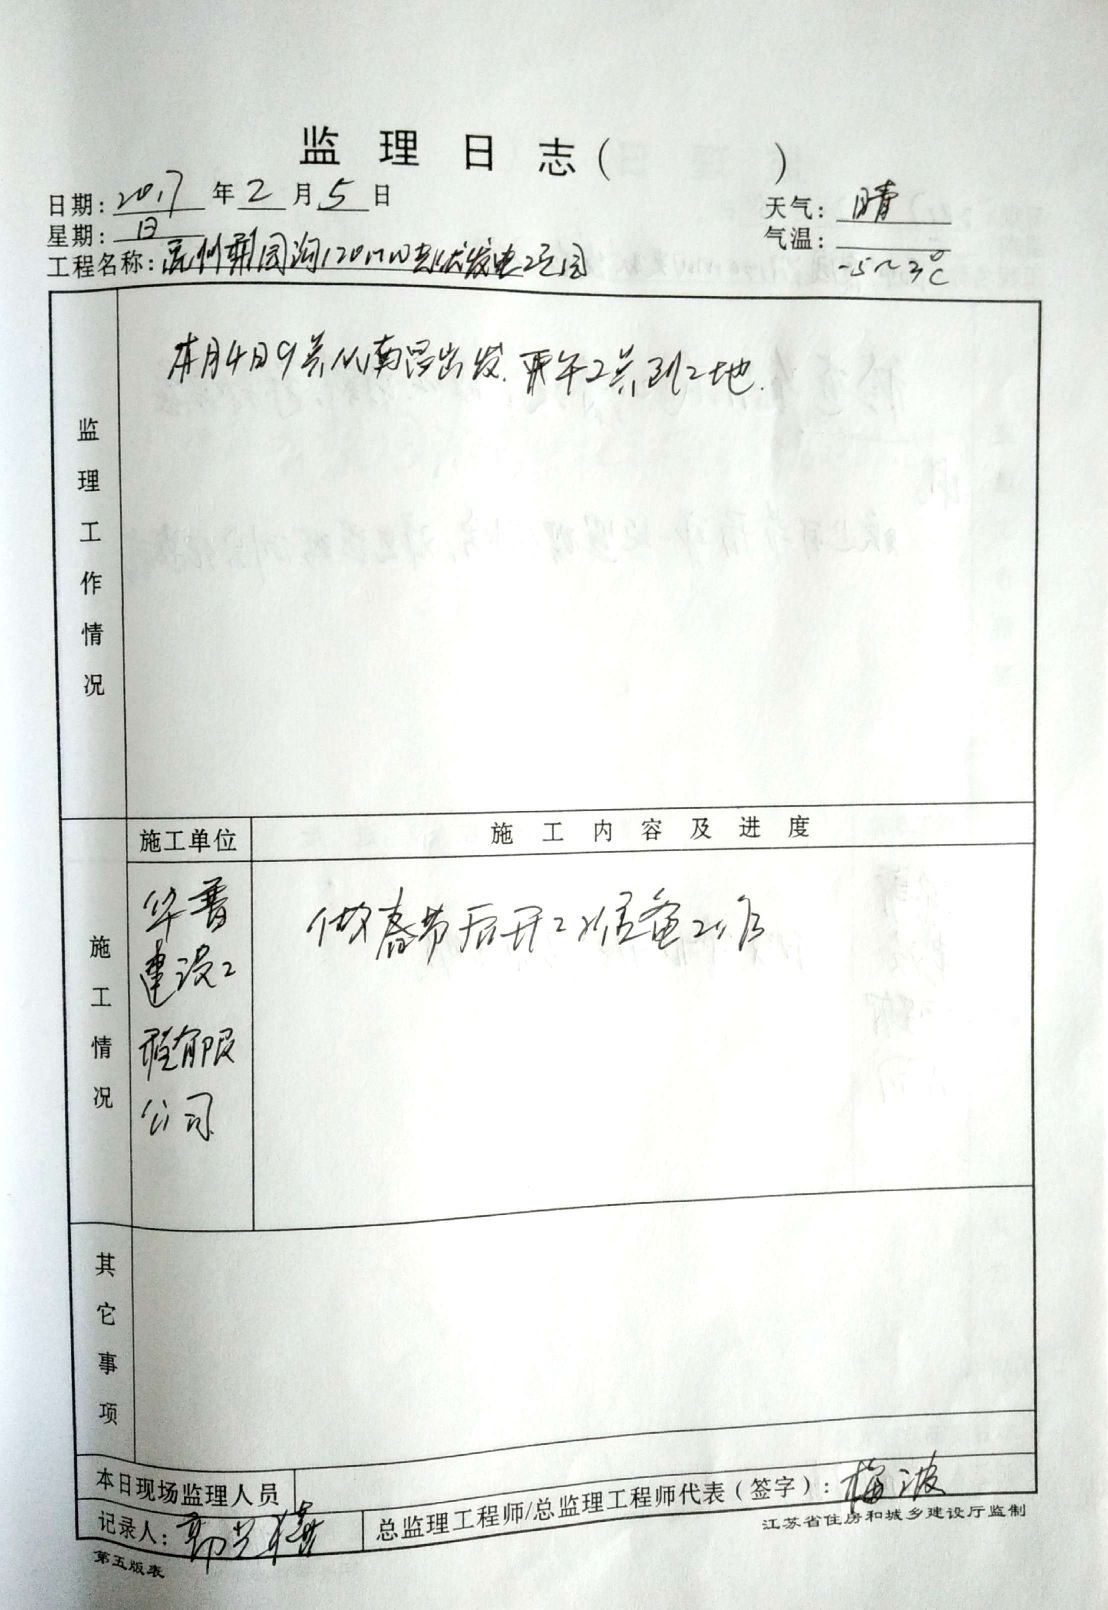 监理日志( )
日期:2017年2月5日
天气:晴
星期:日
气温:-5~3℃
工程名称:州梨园洵120MW光伏发电工程
监理工作情况
本月4日9点从南昌出发.下午2点到工地.
施工情况
施工单位
施工内容及进度
华普
建设工
程有限
公司
做春节后开工准备工作
其它事项
本日现场监理人员
总监理工程师/总监理工程师代表(签字):梅波
记录人:郭
江苏省住房和城乡建设厅监制
第五版表